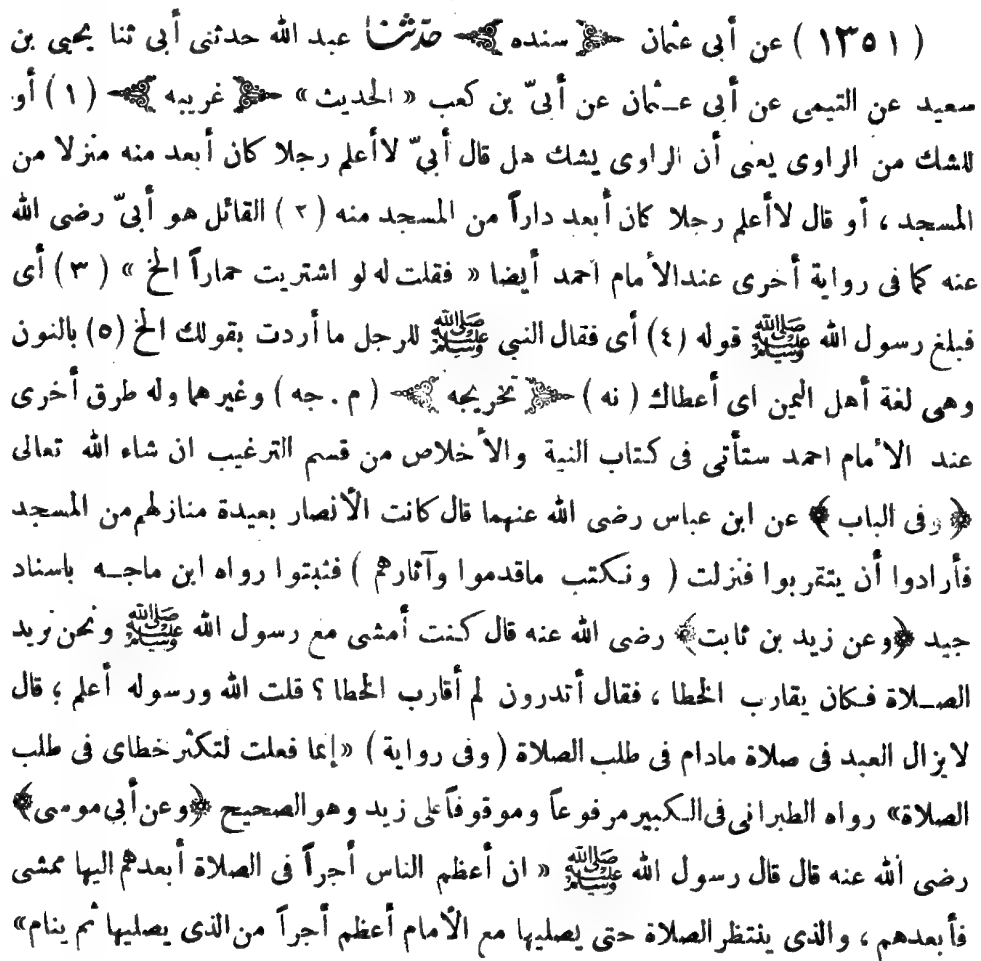 ( ١٣٥١ ) عن أبى عثمان ﴿ سنده ﴾ حدّثنا عبد الله حدثنى أبى ثنا يحيى بن
سعيد عن التيمى عن أبى عـثمان عن أبىّ بن كعب « الحديث » ﴿ غريبه ﴾ ( ١ ) أو
للشك من الراوى يعنى أن الراوى يشك هل قال أبىّ لاأعلم رجلا كان أبعد منه منزلا من
المسجد ، أو قال لاأعلم رجلا كان أبعد داراً من المسجد منه ( ٢ ) القائل هو أبىّ رضى الله
عنه كما فى رواية أخرى عندالأمام احمد أيضا « فقلت له لو اشتريت حماراً الخ » ( ٣ ) أى
فبلغ رسول الله ﷺ قوله (٤) أى فقال النبى ﷺ للرجل ما أردت بقولك الخ (٥) بالنون
وهى لغة أهل اليمن اى أعطاك ( نه ) ﴿ تخريجه ﴾ ( م . جه ) وغيرهما وله طرق أخرى
عند الأمام احمد ستأتى فى كـتاب النية والأخلاص من قسم الترغيب ان شاء الله تعالى
﴿ وفى الباب ﴾ عن ابن عباس رضى الله عنهما قال كانت الأنصار بعيدة منازلهم من المسجد
فأرادوا أن يتقربوا فنزلت ( ونـكتب ماقدموا وآثارهم ) فثبتوا رواه ابن ماجـه باسناد
جيد ﴿وعن زيد بن ثابت﴾ رضى الله عنه قال كـنت أمشى مع رسول الله ﷺ ونحن نريد
الصـلاة فـكان يقارب الخطا ، فقال أتدرون لم أقارب الخطا ؟ قلت الله ورسوله أعلم ؛ قال
لايزال العبد فى صلاة مادام فى طلب الصلاة ( وفى رواية ) «إنما فعلت لتكثر خطاى فى طلب
الصلاة» رواه الطبرانى فى الـكبير مرفوعاً وموقوفاً على زيد وهو الصحيح ﴿وعن أبى موسى﴾
رضى الله عنه قال قال رسول الله ﷺ « ان أعظم الناس أجراً فى الصلاة أبعدهم اليها ممشى
فأبعدهم ، والذى ينتظر الصلاة حتى يصليها مع الأمام أعظم أجراً من الذى يصليها ثم ينام»